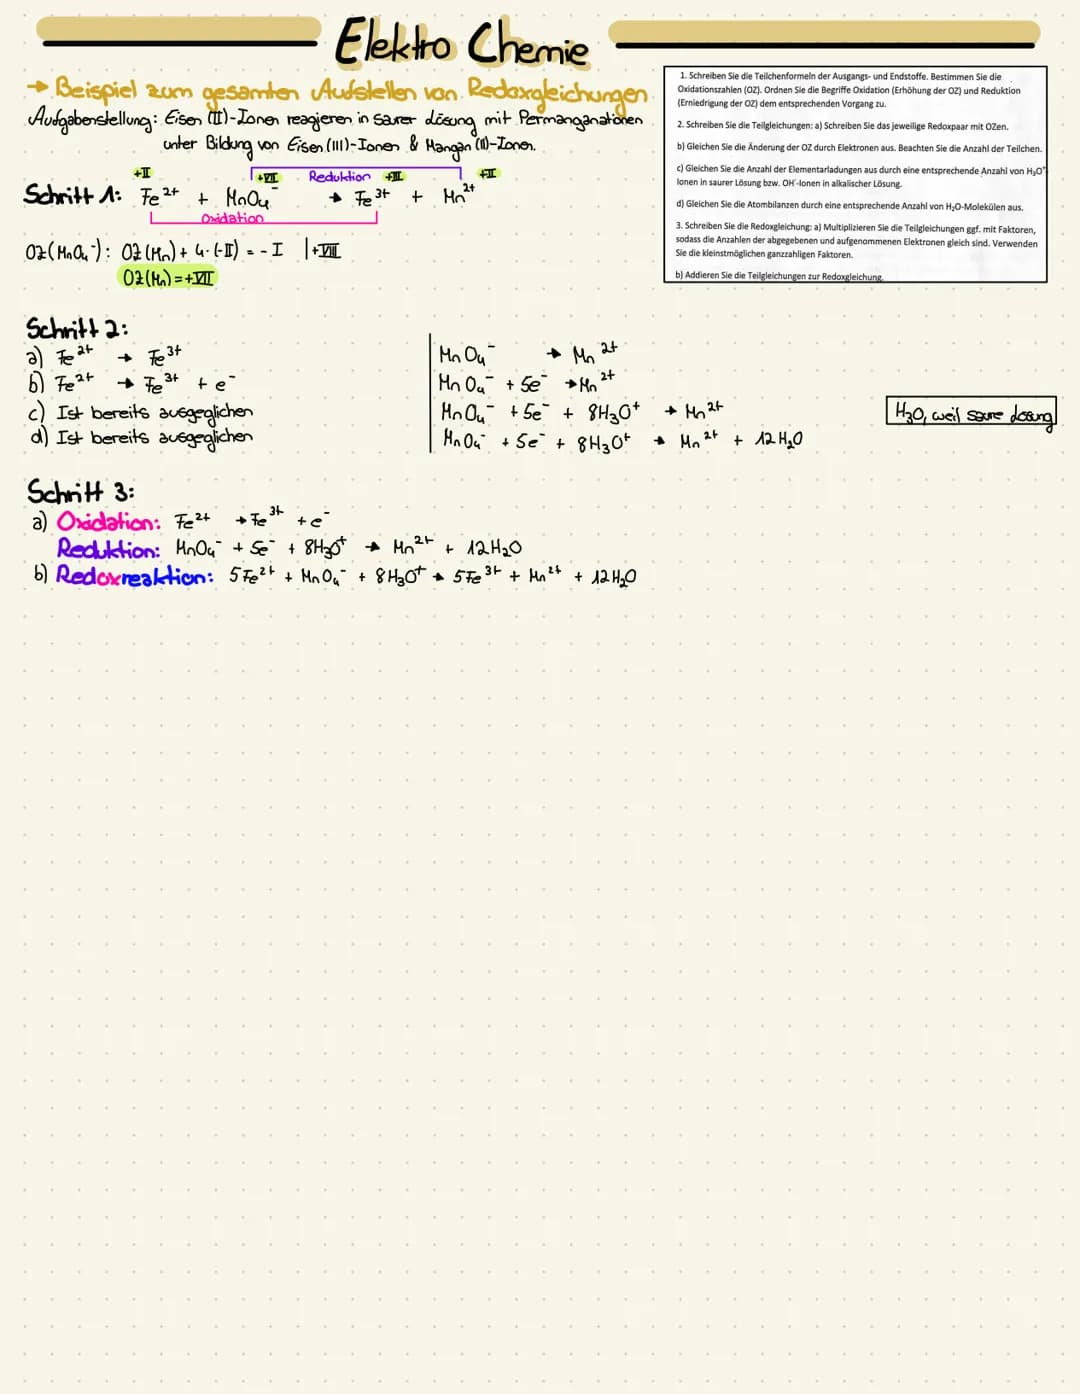 Elektro Chemie
→ Beispiel zum gesamten Aufstellen von Redoxgleichungen
Aufgabenstellung: Eisen (II)-Ionen reagieren in saurer Lösung mit Permanganationen
unter Bildung von Eisen (III)-Ionen & Mangan (II)-Ionen.
1. Schreiben Sie die Teilchenformeln der Ausgangs- und Endstoffe. Bestimmen Sie die
Oxidationszahlen (OZ). Ordnen Sie die Begriffe Oxidation (Erhöhung der OZ) und Reduktion
(Erniedrigung der OZ) dem entsprechenden Vorgang zu.
2. Schreiben Sie die Teilgleichungen: a) Schreiben Sie das jeweilige Redoxpaar mit OZen.
b) Gleichen Sie die Änderung der OZ durch Elektronen aus. Beachten Sie die Anzahl der Teilchen.
c) Gleichen Sie die Anzahl der Elementarladungen aus durch eine entsprechende Anzahl von H₃O⁺
Ionen in saurer Lösung bzw. OH⁻-Ionen in alkalischer Lösung.
d) Gleichen Sie die Atombilanzen durch eine entsprechende Anzahl von H₂O-Molekülen aus.
3. Schreiben Sie die Redoxgleichung: a) Multiplizieren Sie die Teilgleichungen ggf. mit Faktoren,
sodass die Anzahlen der abgegebenen und aufgenommenen Elektronen gleich sind. Verwenden
Sie die kleinstmöglichen ganzzahligen Faktoren.
b) Addieren Sie die Teilgleichungen zur Redoxgleichung.
+II +VII Reduktion +III +II
Schritt 1: Fe²⁺ + MnO₄⁻ → Fe³⁺ + Mn²⁺
Oxidation
OZ(MnO₄⁻): OZ(Mn) + 4·(-II) = -I |+VIII
OZ(Mn) = +VII
Schritt 2:
a) Fe²⁺ → Fe³⁺ | MnO₄⁻ → Mn²⁺
b) Fe²⁺ → Fe³⁺ + e⁻ | MnO₄⁻ + 5e⁻ → Mn²⁺
c) Ist bereits ausgeglichen | MnO₄⁻ + 5e⁻ + 8H₃O⁺ → Mn²⁺
H₃O, weil saure Lösung
d) Ist bereits ausgeglichen | MnO₄⁻ + 5e⁻ + 8H₃O⁺ → Mn²⁺ + 12H₂O
Schritt 3:
a) Oxidation: Fe²⁺ → Fe³⁺ + e⁻
Reduktion: MnO₄⁻ + 5e⁻ + 8H₃O⁺ → Mn²⁺ + 12H₂O
b) Redoxreaktion: 5Fe²⁺ + MnO₄⁻ + 8H₃O⁺ → 5Fe³⁺ + Mn²⁺ + 12H₂O